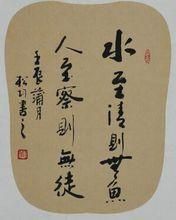 水至清則無魚
人至察則無徒
壬辰蒲月
松
書之